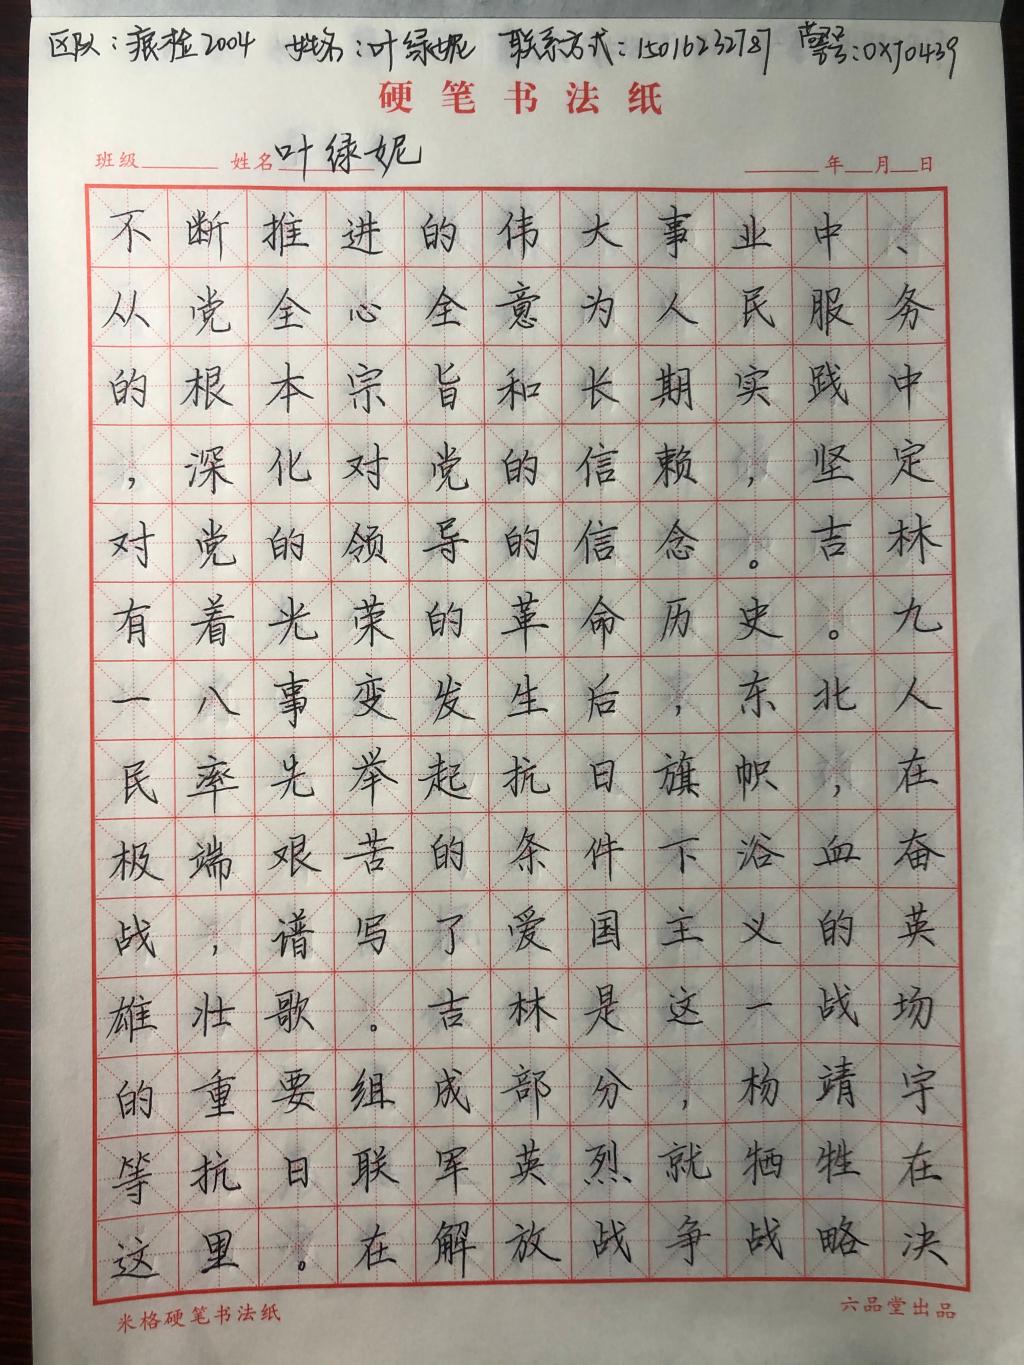 区队：痕检2004 姓名：叶绿妮 联系方式：15016232787 警号：0XJ0439
硬笔书法纸
班级 姓名 叶绿妮 年 月 日
不断推进的伟大事业中、
从党全心全意为人民服务
的根本宗旨和长期实践中
，深化对党的信赖，坚定
对党的领导的信念。吉林
有着光荣的革命历史。九
一八事变发生后，东北人
民率先举起抗日旗帜，在
极端艰苦的条件下浴血奋
战，谱写了爱国主义的英
雄壮歌。吉林是这一战场
的重要组成部分，杨靖宇
等抗日联军英烈就牺牲在
这里。在解放战争战略决
米格硬笔书法纸 六品堂出品